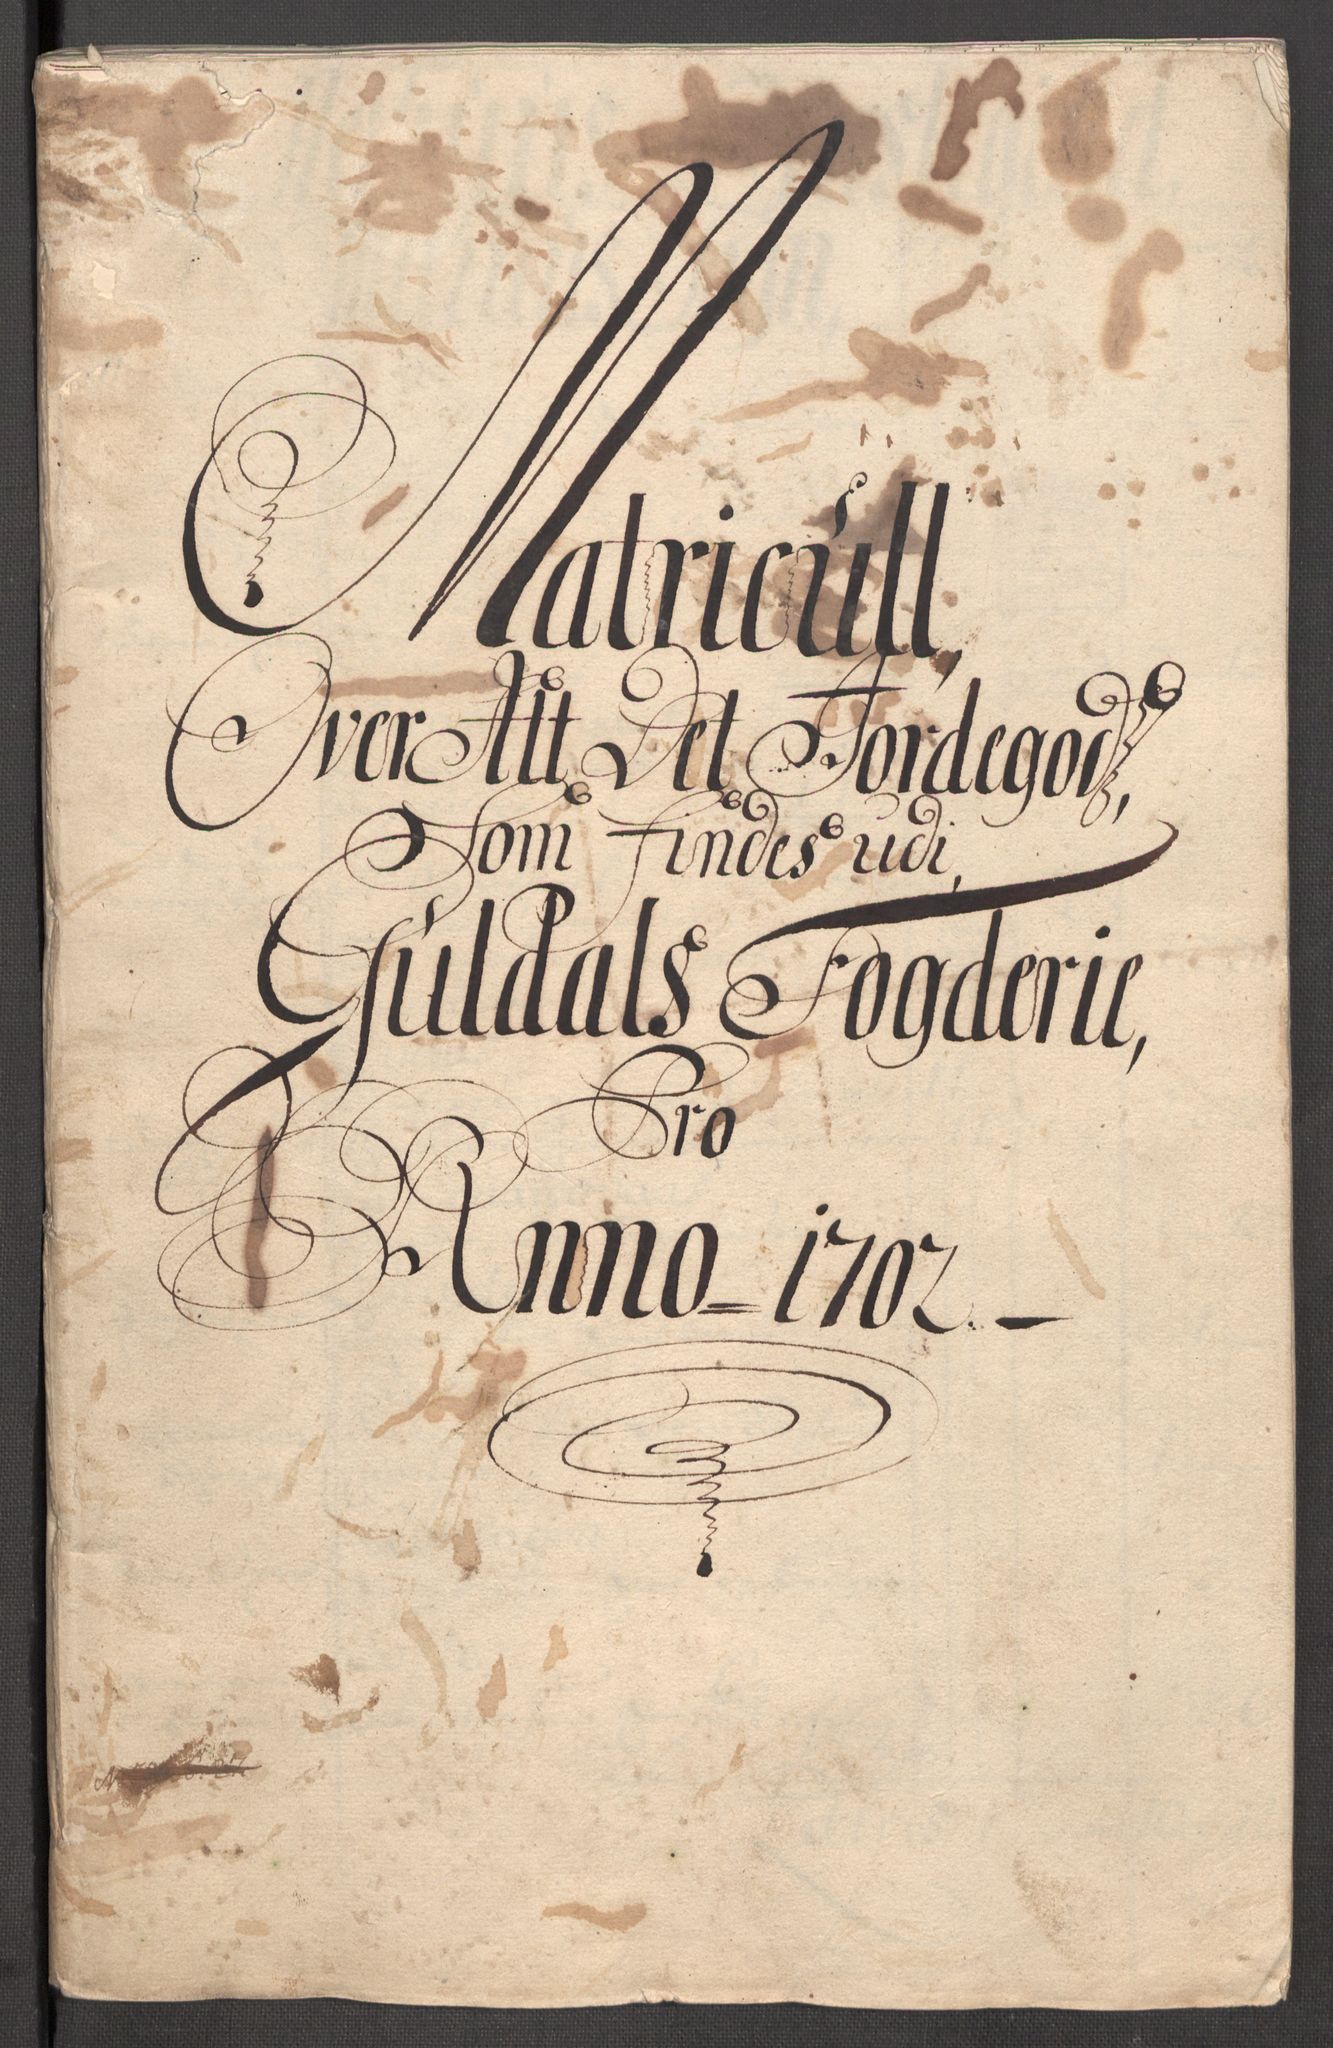 Matricull,
Over Alt Det Jordegodz,
Som findes udi,
Guldals Fogderie,
Pro
Anno = 1702. –